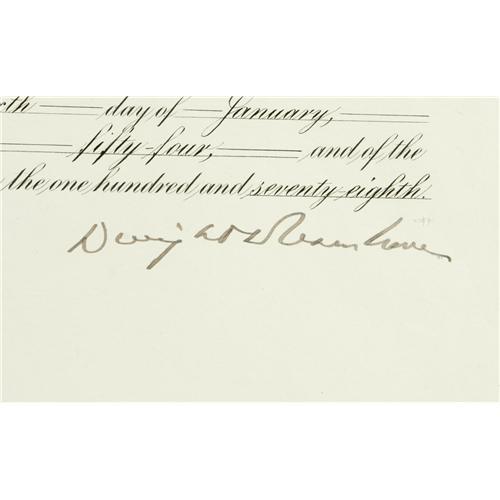 day of January,
fifty-four, and of the
the one hundred and seventy-eighth.
Dwight D Eisenhower